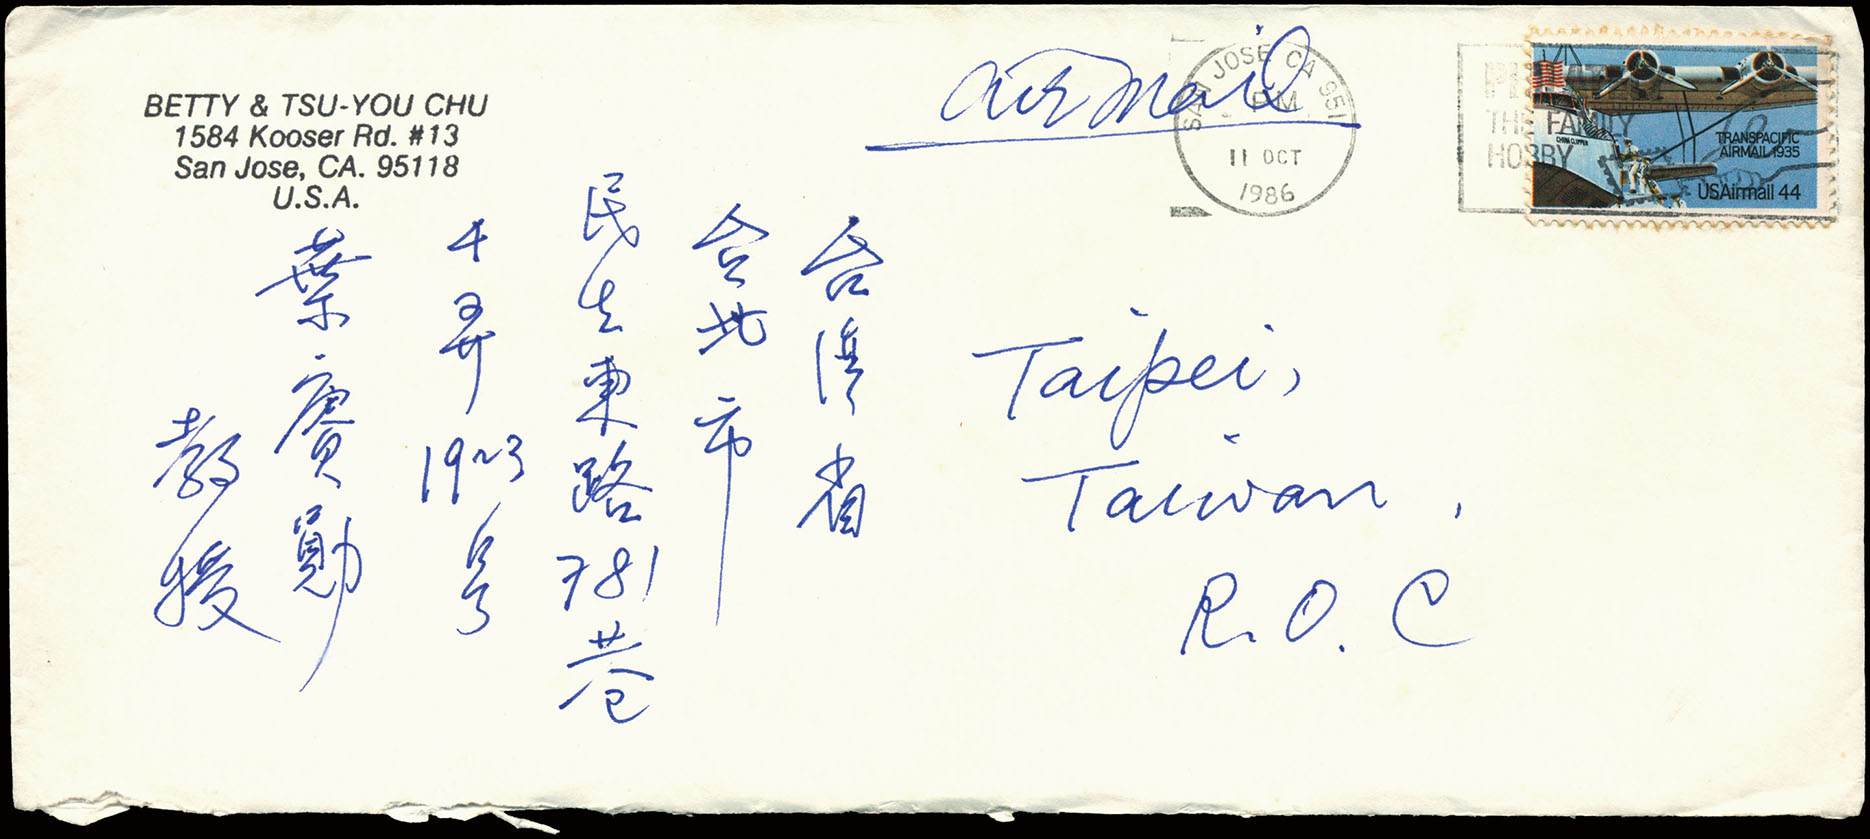 BETTY & TSU-YOU CHU
1584 Kooser Rd. #13
San Jose, CA. 95118
U.S.A.
airmail
SAN JOSE CA 951
PM
11 OCT
1986
THE FAMILY
HOBBY
CHINA CLIPPER
TRANSPACIFIC
AIRMAIL 1935
USAirmail 44
台湾省
台北市
民生東路781巷
十弄19~3号
葉賡勛
教授
Taipei,
Taiwan,
R.O.C